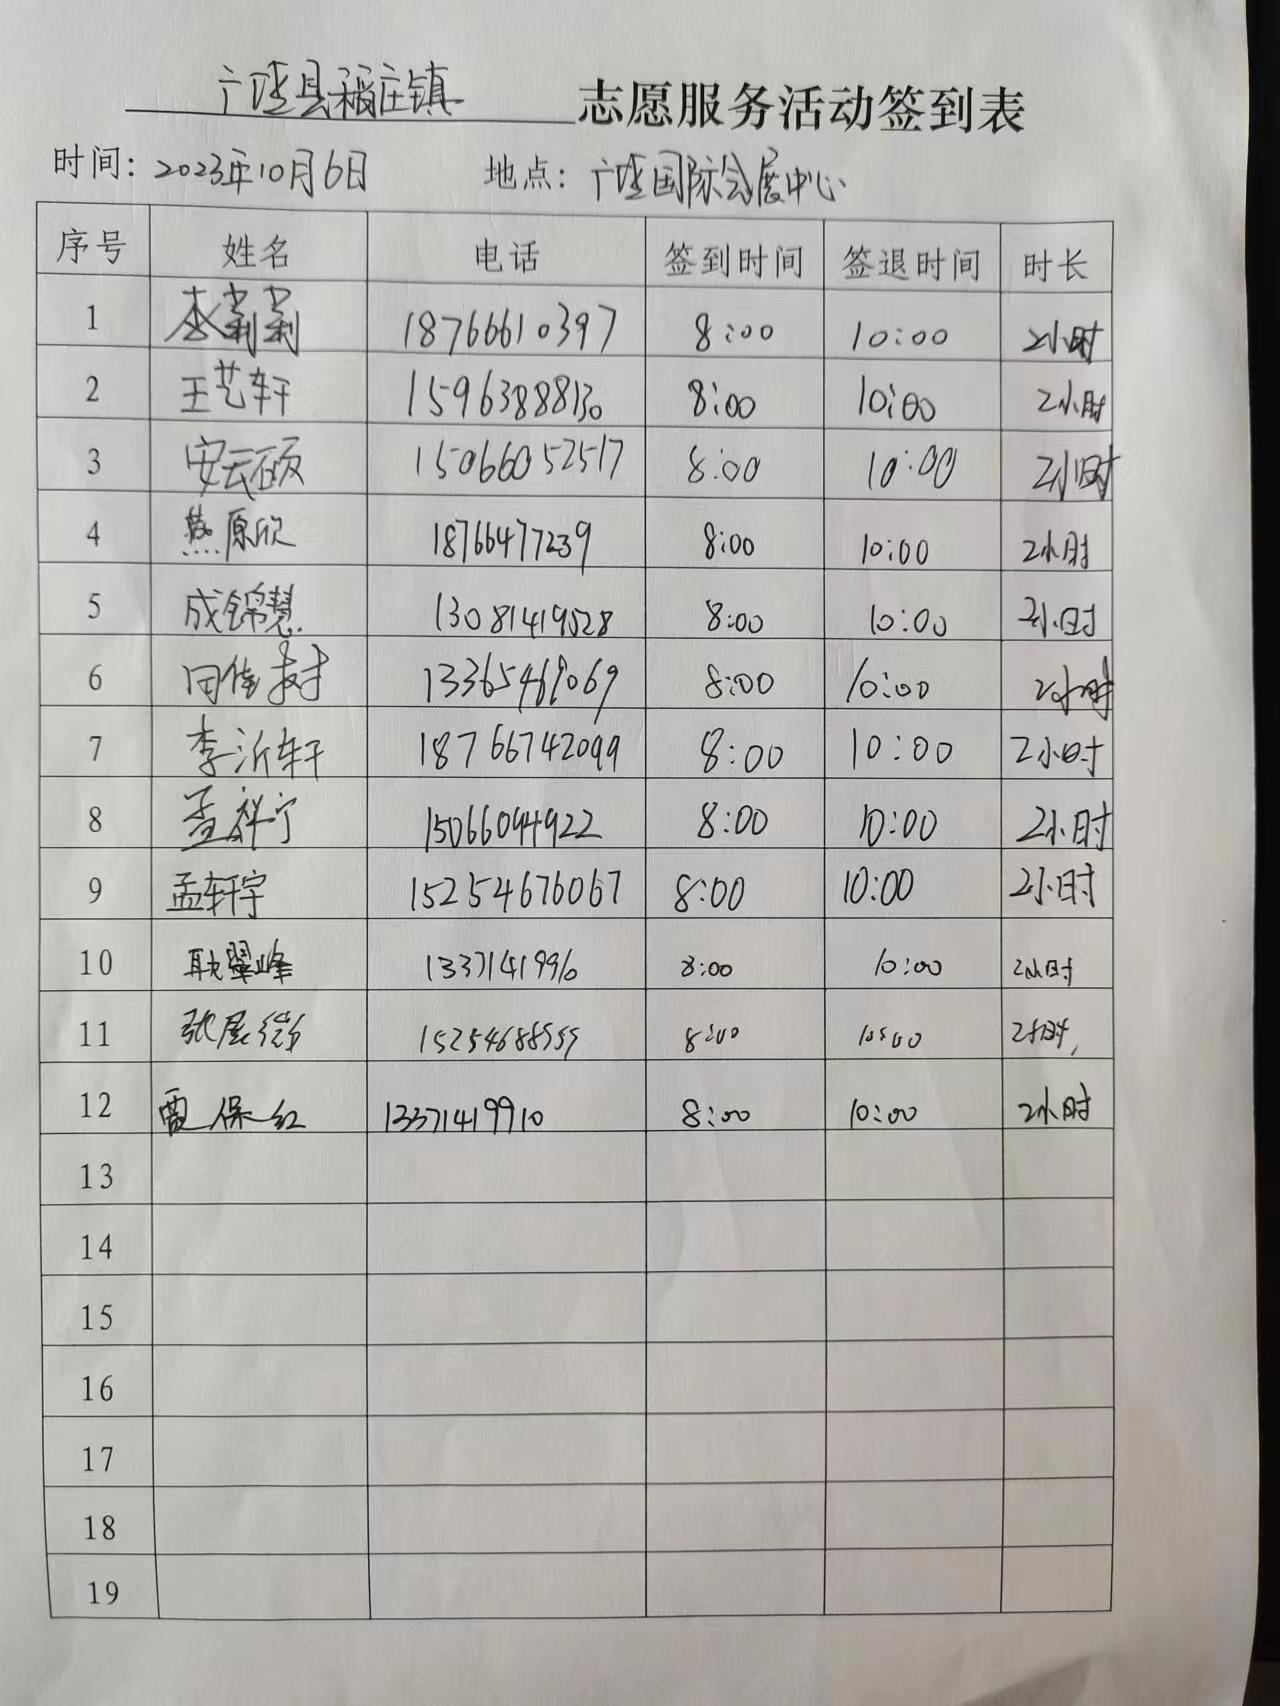 广饶县稻庄镇 志愿服务活动签到表
时间：2023年10月6日 地点：广饶国际会展中心
序号 姓名 电话 签到时间 签退时间 时长
1 李莉莉 18766610397 8:00 10:00 2小时
2 王艺轩 15963888130 8:00 10:00 2小时
3 安云硕 15066052517 8:00 10:00 2小时
4 燕原欣 18766477239 8:00 10:00 2小时
5 成锦慧 13081419528 8:00 10:00 2小时
6 田佳树 13365469069 8:00 10:00 2小时
7 李沂轩 18766742099 8:00 10:00 2小时
8 孟祥宁 15066094922 8:00 10:00 2小时
9 孟轩宇 15254676067 8:00 10:00 2小时
10 耿翠峰 13371419916 8:00 10:00 2小时
11 张展 8:00 10:00 2小时
12 贾保红 13371419910 8:00 10:00 2小时
13
14
15
16
17
18
19